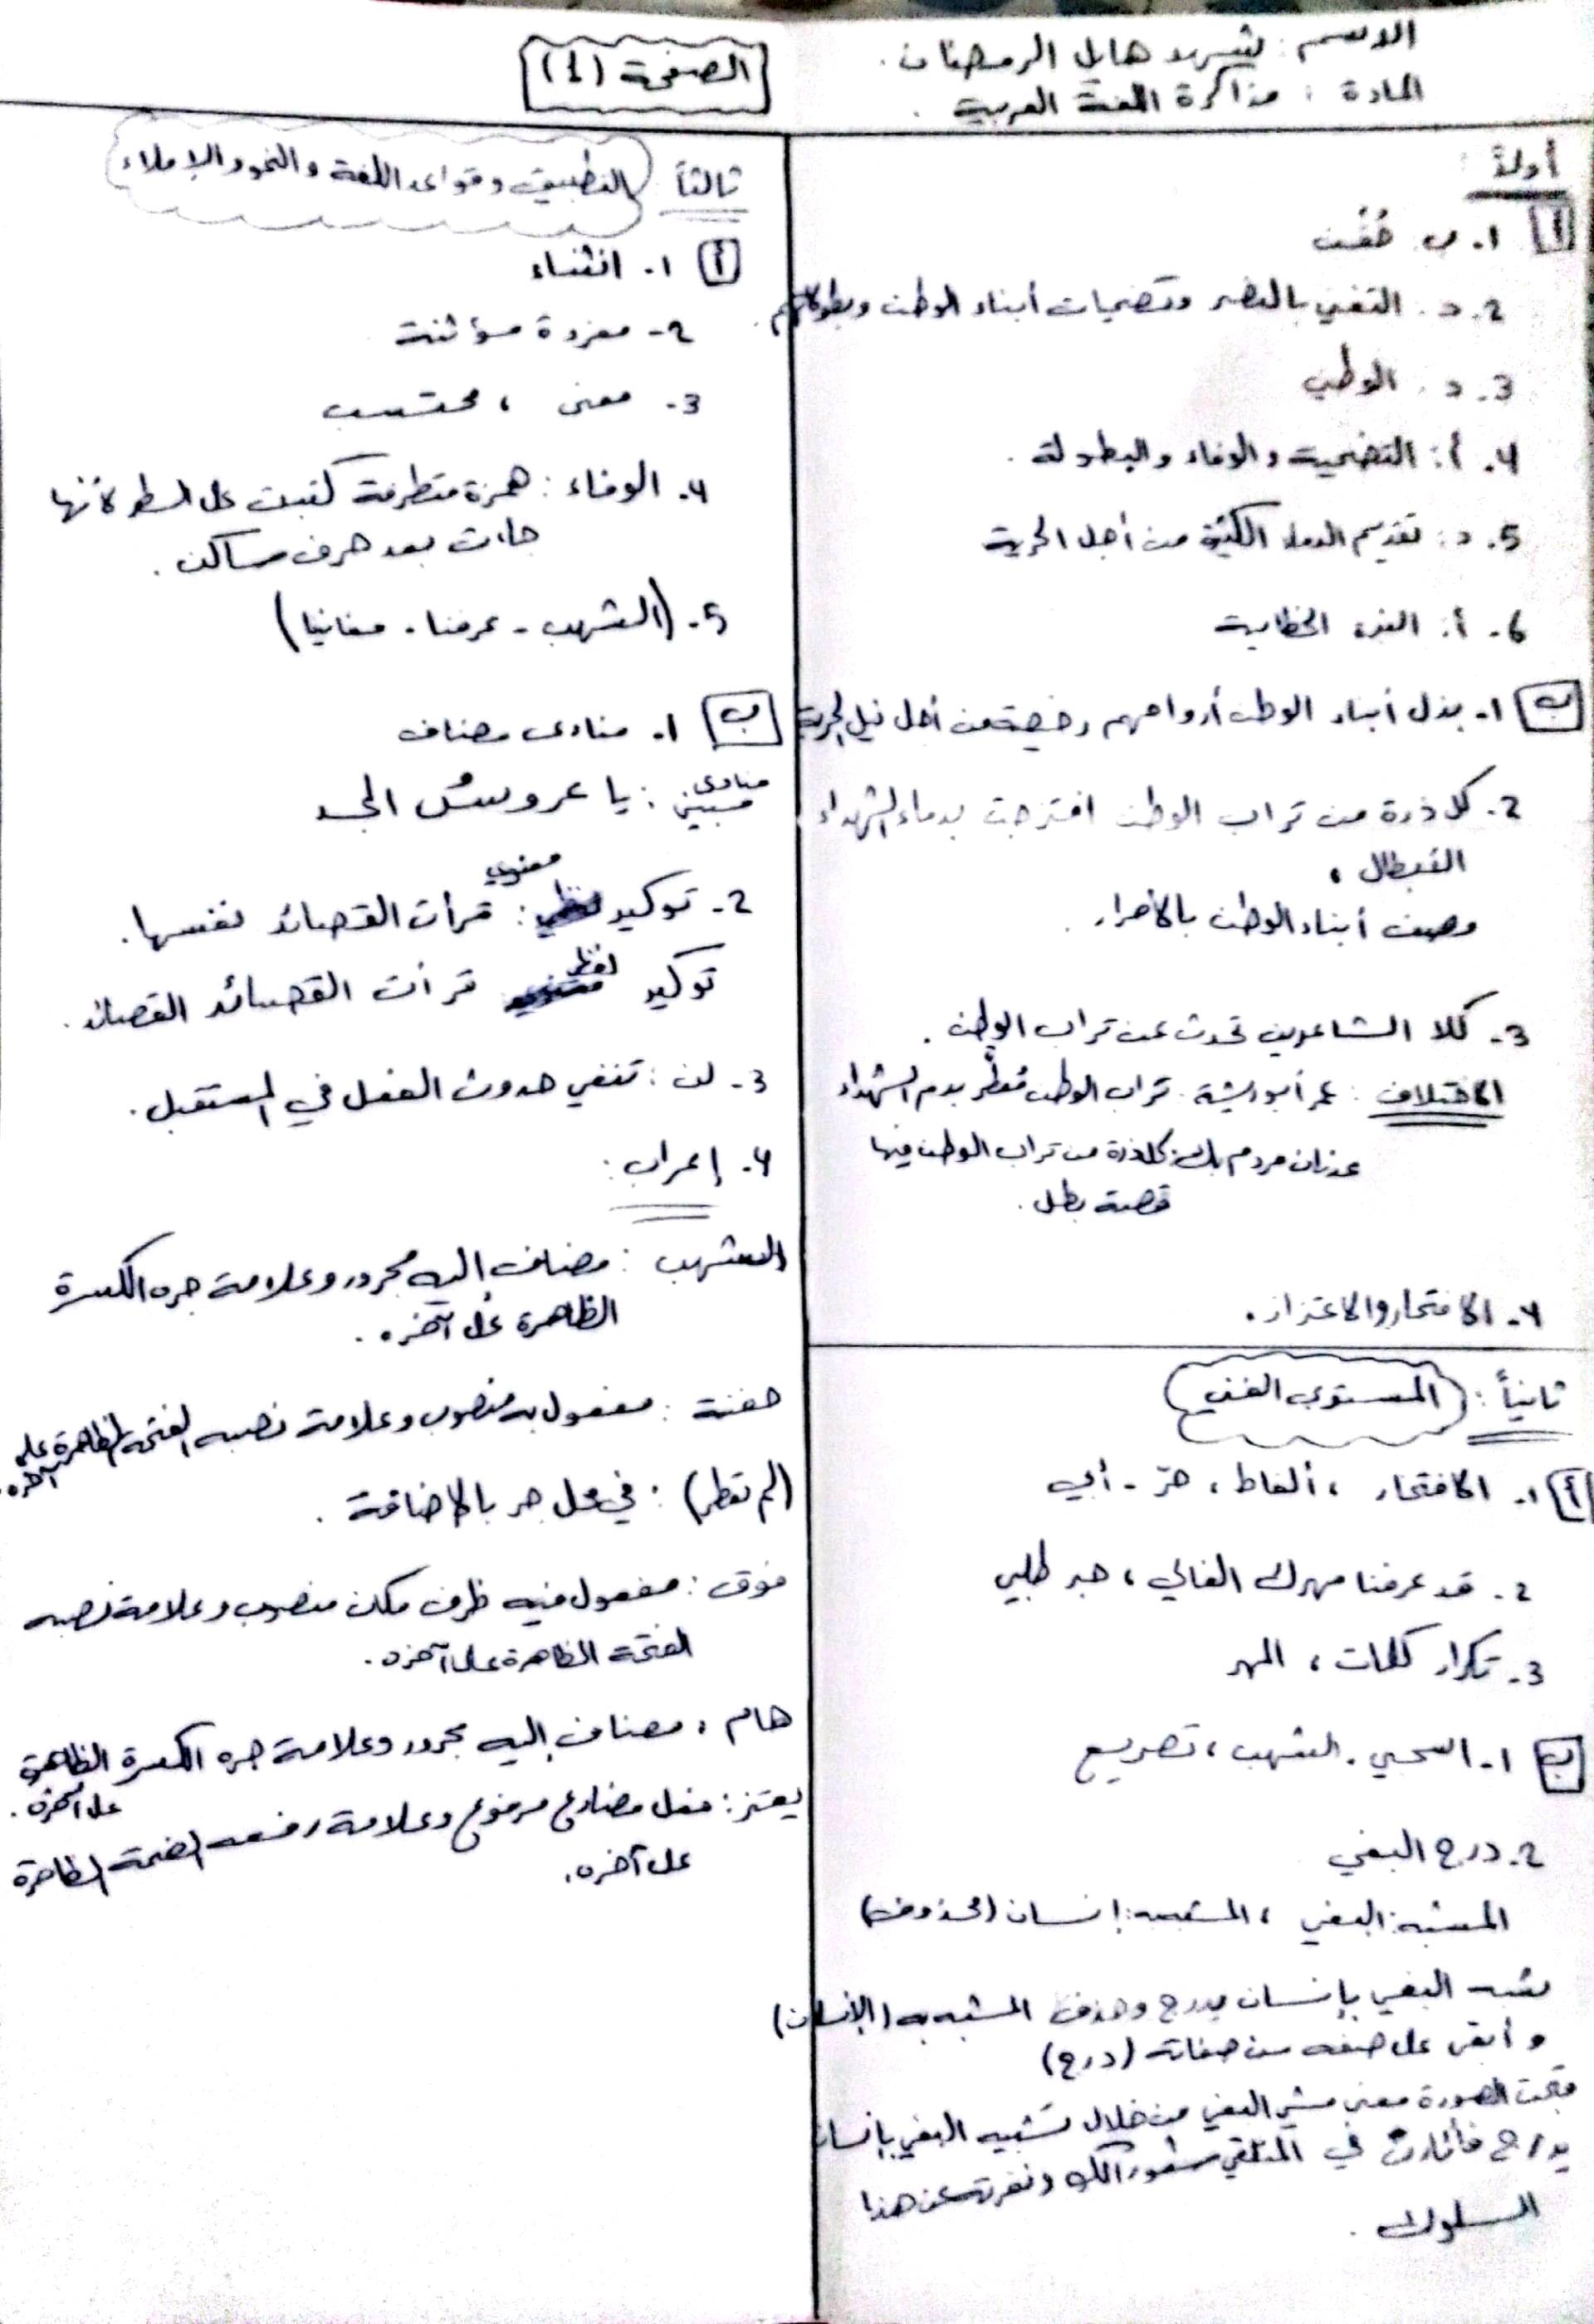 الاسم : شهد هايل الرمضان .
المادة : مذاكرة اللغة العربية .
الصفحة (1)
أولاً :
أ 1. ب. خُفّت
2. د. التغني بالنصر وتضحيات أبناء الوطن وبطولاتهم .
3. د. الوطن
4. أ: التضحية والوفاء والبطولة .
5. د: تقديم الدماء الكثيرة من أجل الحرية
6. أ: النبرة الخطابية
ب 1. بذل أبناء الوطن أرواحهم رخيصة من أجل نيل الحرية
2. كل ذرة من تراب الوطن امتزجت بدماء الشهداء
وصف أبناء الوطن بالأحرار .
3. كلا الشاعرين تحدث عن تراب الوطن .
الاختلاف : عمر أبو ريشة : تراب الوطن مُعطّر بدم الشهداء
عدنان مردم بك: كل ذرة من تراب الوطن فيها
قصة بطل .
4. الافتخار والاعتزاز .
ثانياً : المستوى الفني
أ 1. الافتخار ، ألفاظ ، حرّ - أبي
2. قد عرفنا مهرك الغالي ، خبر طلبي
3. تكرار كلمات ، المهر
ب 1. اسحبي . الشهب ، تصريع
2. درج البغي
المشبه: البغي ، المشبه به: إنسان (محذوف)
شبه البغي بإنسان يدرج وحذف المشبه به (الإنسان)
و أبقى على صفة من صفاته (درج)
قبحت الصورة معنى مشي البغي من خلال تشبيه البغي بإنسان
يدرج فأثارت في المتلقي شعور الكره ونفرته عن هذا
السلوك .
ثالثاً التطبيق وقواعد اللغة والنحو والإملاء
أ 1. انثناء
2- مفردة مؤنثة
3. معنى ، محتسب
4. الوفاء : همزة متطرفة كتبت على السطر لأنها
جاءت بعد حرف ساكن .
5. (الشهب - عرفنا . مغانيا)
ب 1. منادى مضاف
منادى مبين : يا عروسُ المجد
2- توكيد معنوي : قرأت القصائد نفسها .
توكيد لفظي قرأت القصائد القصائد .
3. لن : تنفي حدوث الفعل في المستقبل .
4. إعراب :
الشهب : مضاف إليه مجرور وعلامة جره الكسرة
الظاهرة على آخره .
حفنة : مفعول به منصوب وعلامة نصبه الفتحة الظاهرة على آخره .
(لم تعطر) : في محل جر بالإضافة .
فوق : مفعول فيه ظرف مكان منصوب وعلامة نصبه
الفتحة الظاهرة على آخره .
هام : مضاف إليه مجرور وعلامة جره الكسرة الظاهرة
على آخره .
يعتز : فعل مضارع مرفوع وعلامة رفعه الضمة الظاهرة
على آخره .